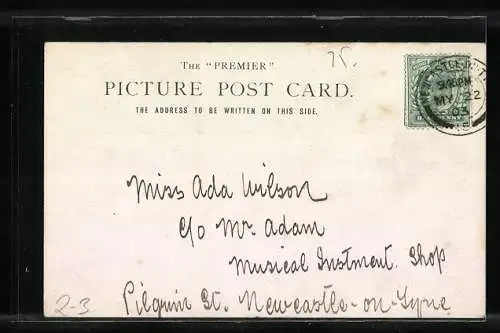 The "PREMIER"
75.
PICTURE POST CARD.
THE ADDRESS TO BE WRITTEN ON THIS SIDE.
MY 22
03
Miss Ada Wilson
c/o Mr. Adam
Musical Instment. Shop
Pilgrim St. Newcastle-on-Tyne
2-3